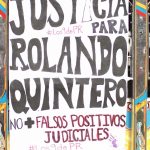 JUSTICIA
#Los9dePR PARA
ROLANDO
QUINTERO
NO + FALSOS POSITIVOS
JUDICIALES
#Los9dePR